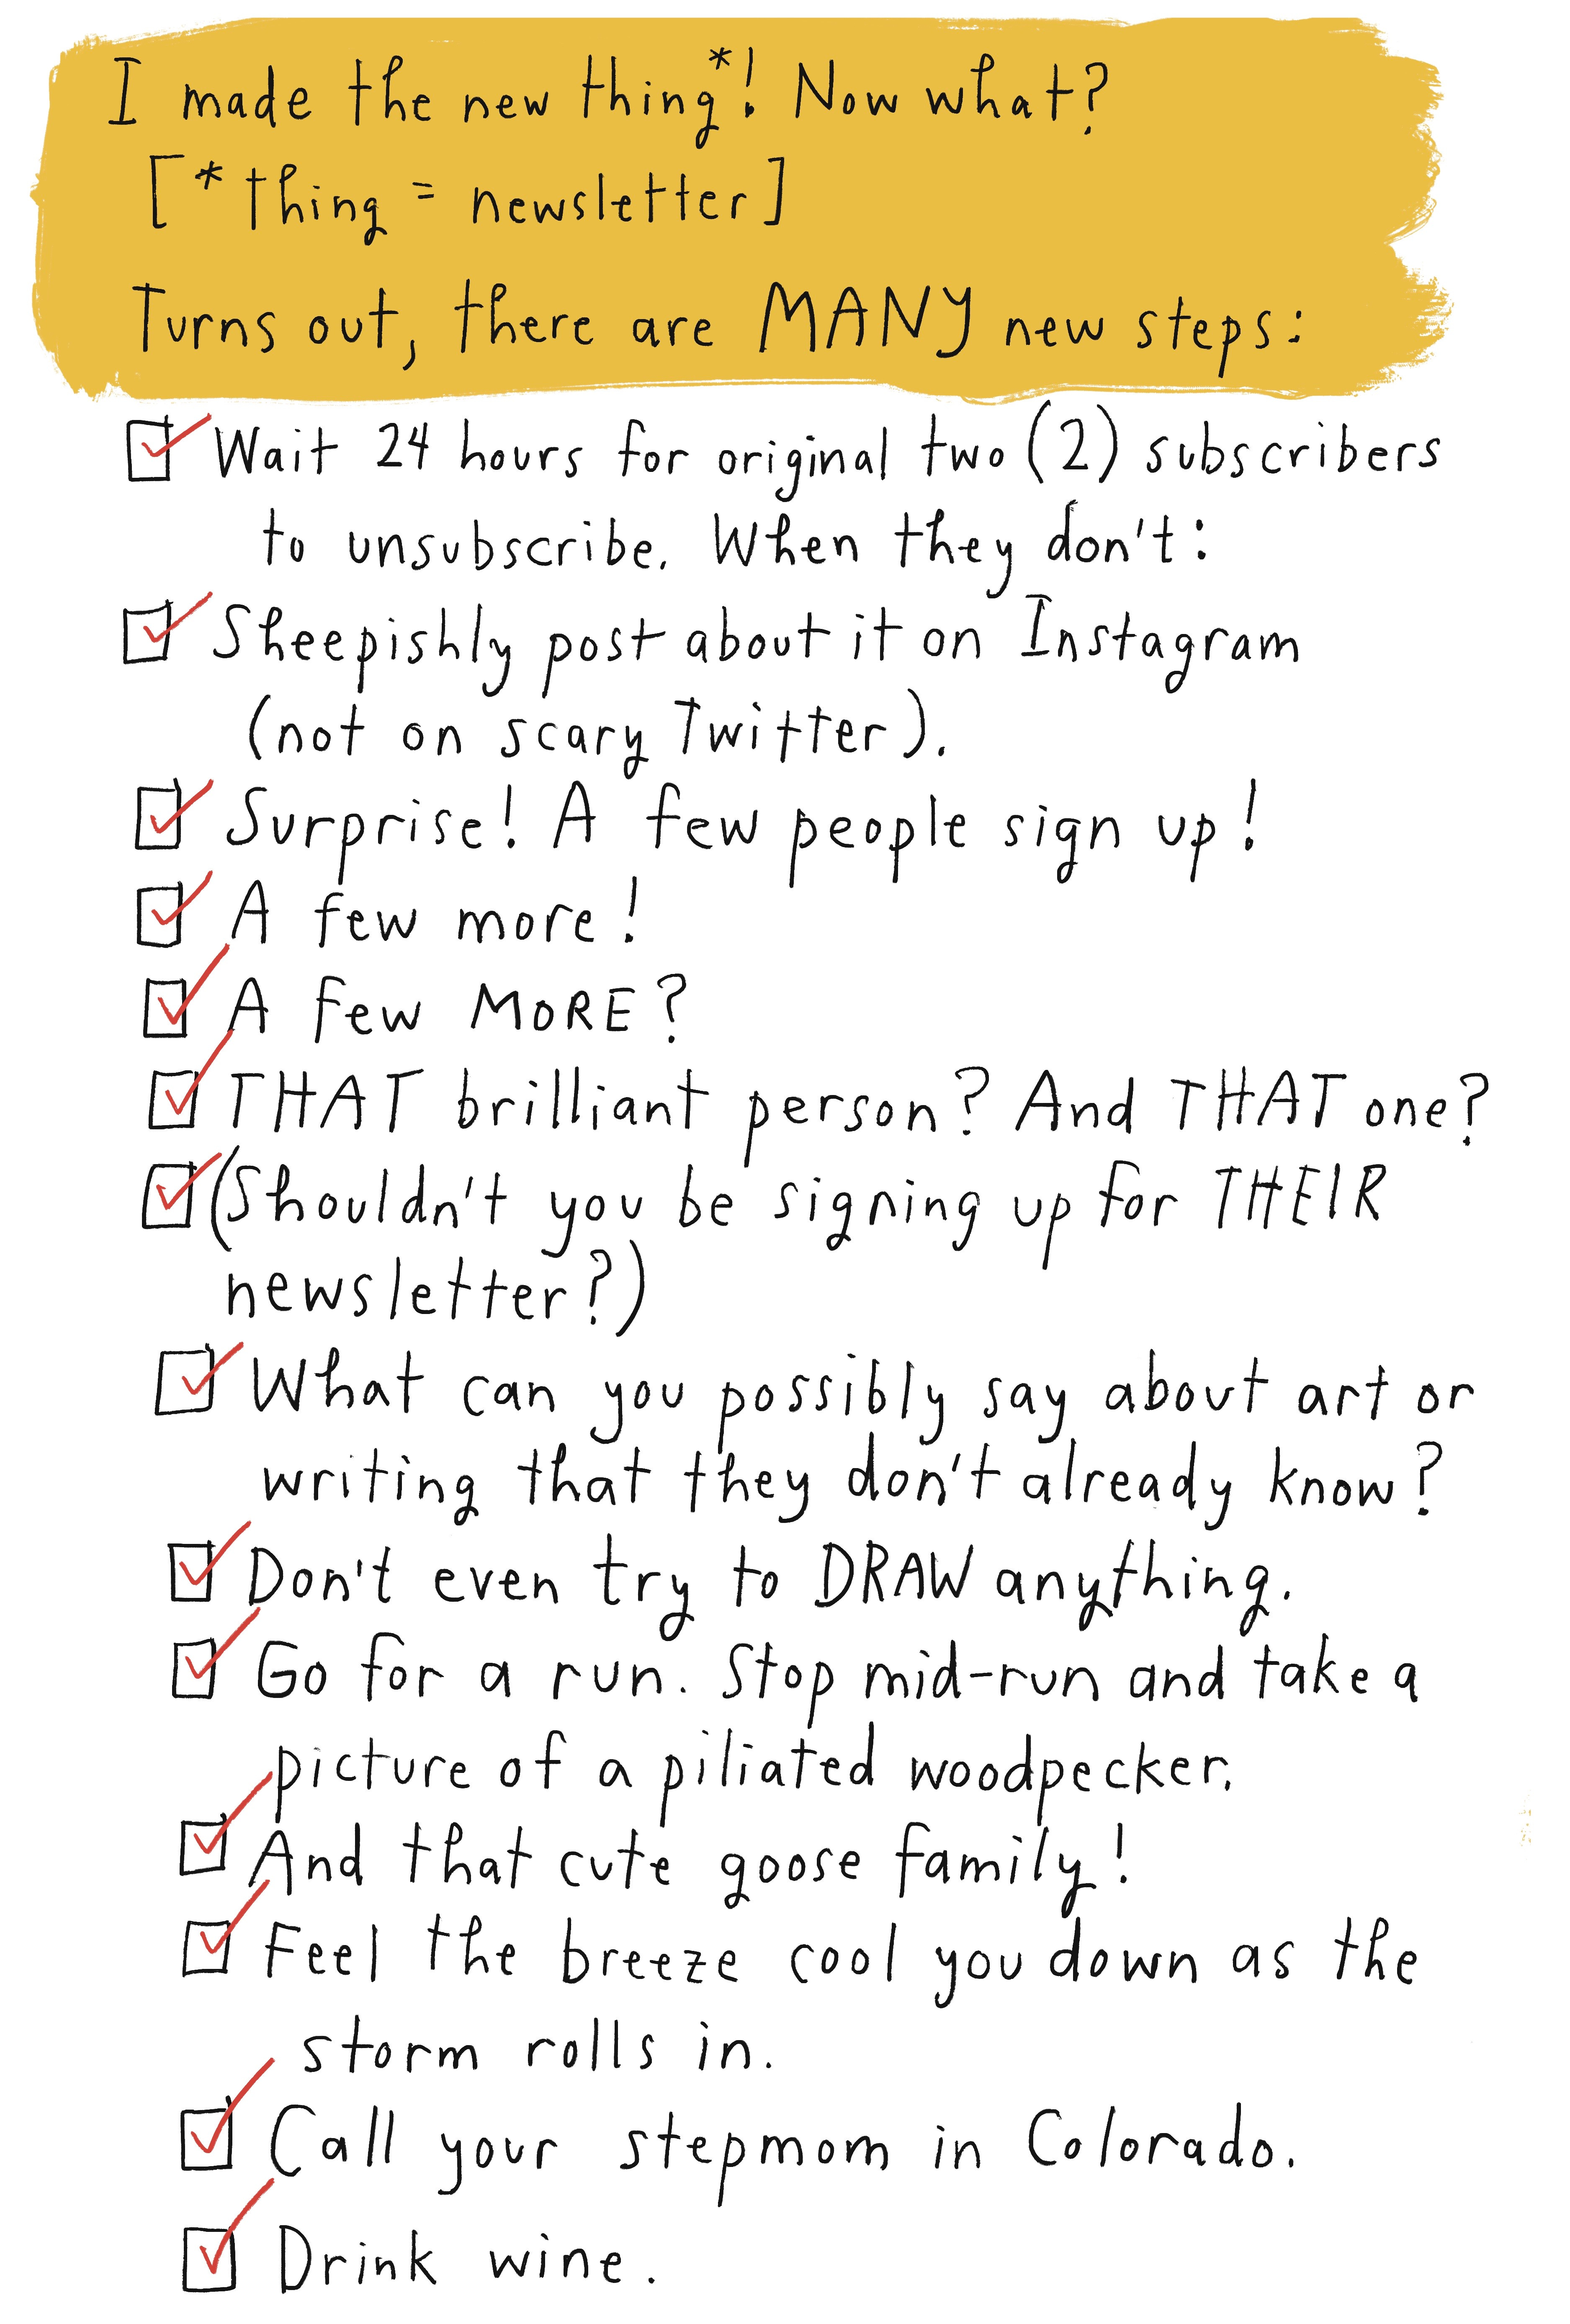 I made the new thing*! Now what?
[*thing = newsletter]
Turns out, there are MANY new steps:
Wait 24 hours for original two (2) subscribers
to unsubscribe. When they don't:
Sheepishly post about it on Instagram
(not on scary Twitter).
Surprise! A few people sign up!
A few more!
A few MORE?
THAT brilliant person? And THAT one?
(Shouldn't you be signing up for THEIR
newsletter?)
What can you possibly say about art or
writing that they don't already know?
Don't even try to DRAW anything.
Go for a run. Stop mid-run and take a
picture of a piliated woodpecker.
And that cute goose family!
Feel the breeze cool you down as the
storm rolls in.
Call your stepmom in Colorado.
Drink wine.